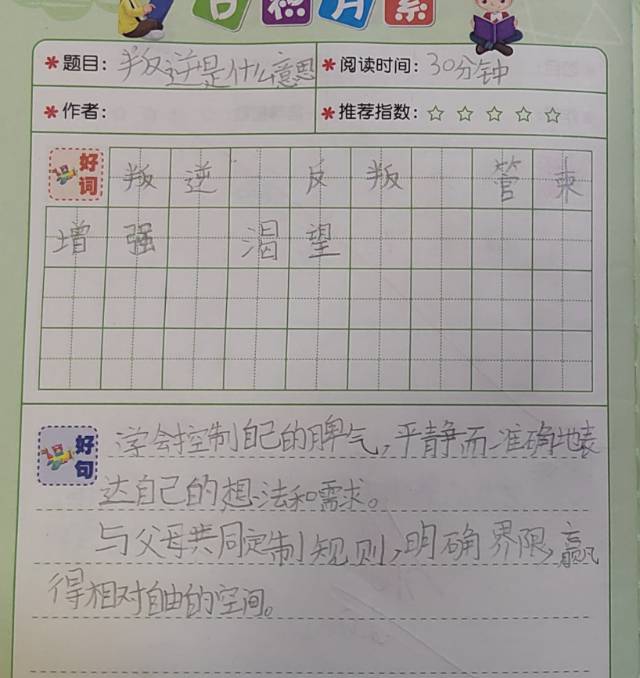 日积月累
题目：叛逆是什么意思 阅读时间：30分钟
作者： 推荐指数：☆☆☆☆☆
好词 叛逆 反叛 管束
增强 渴望
好句 学会控制自己的脾气，平静而准确地表
达自己的想法和需求。
与父母共同定制规则，明确界限，赢
得相对自由的空间。